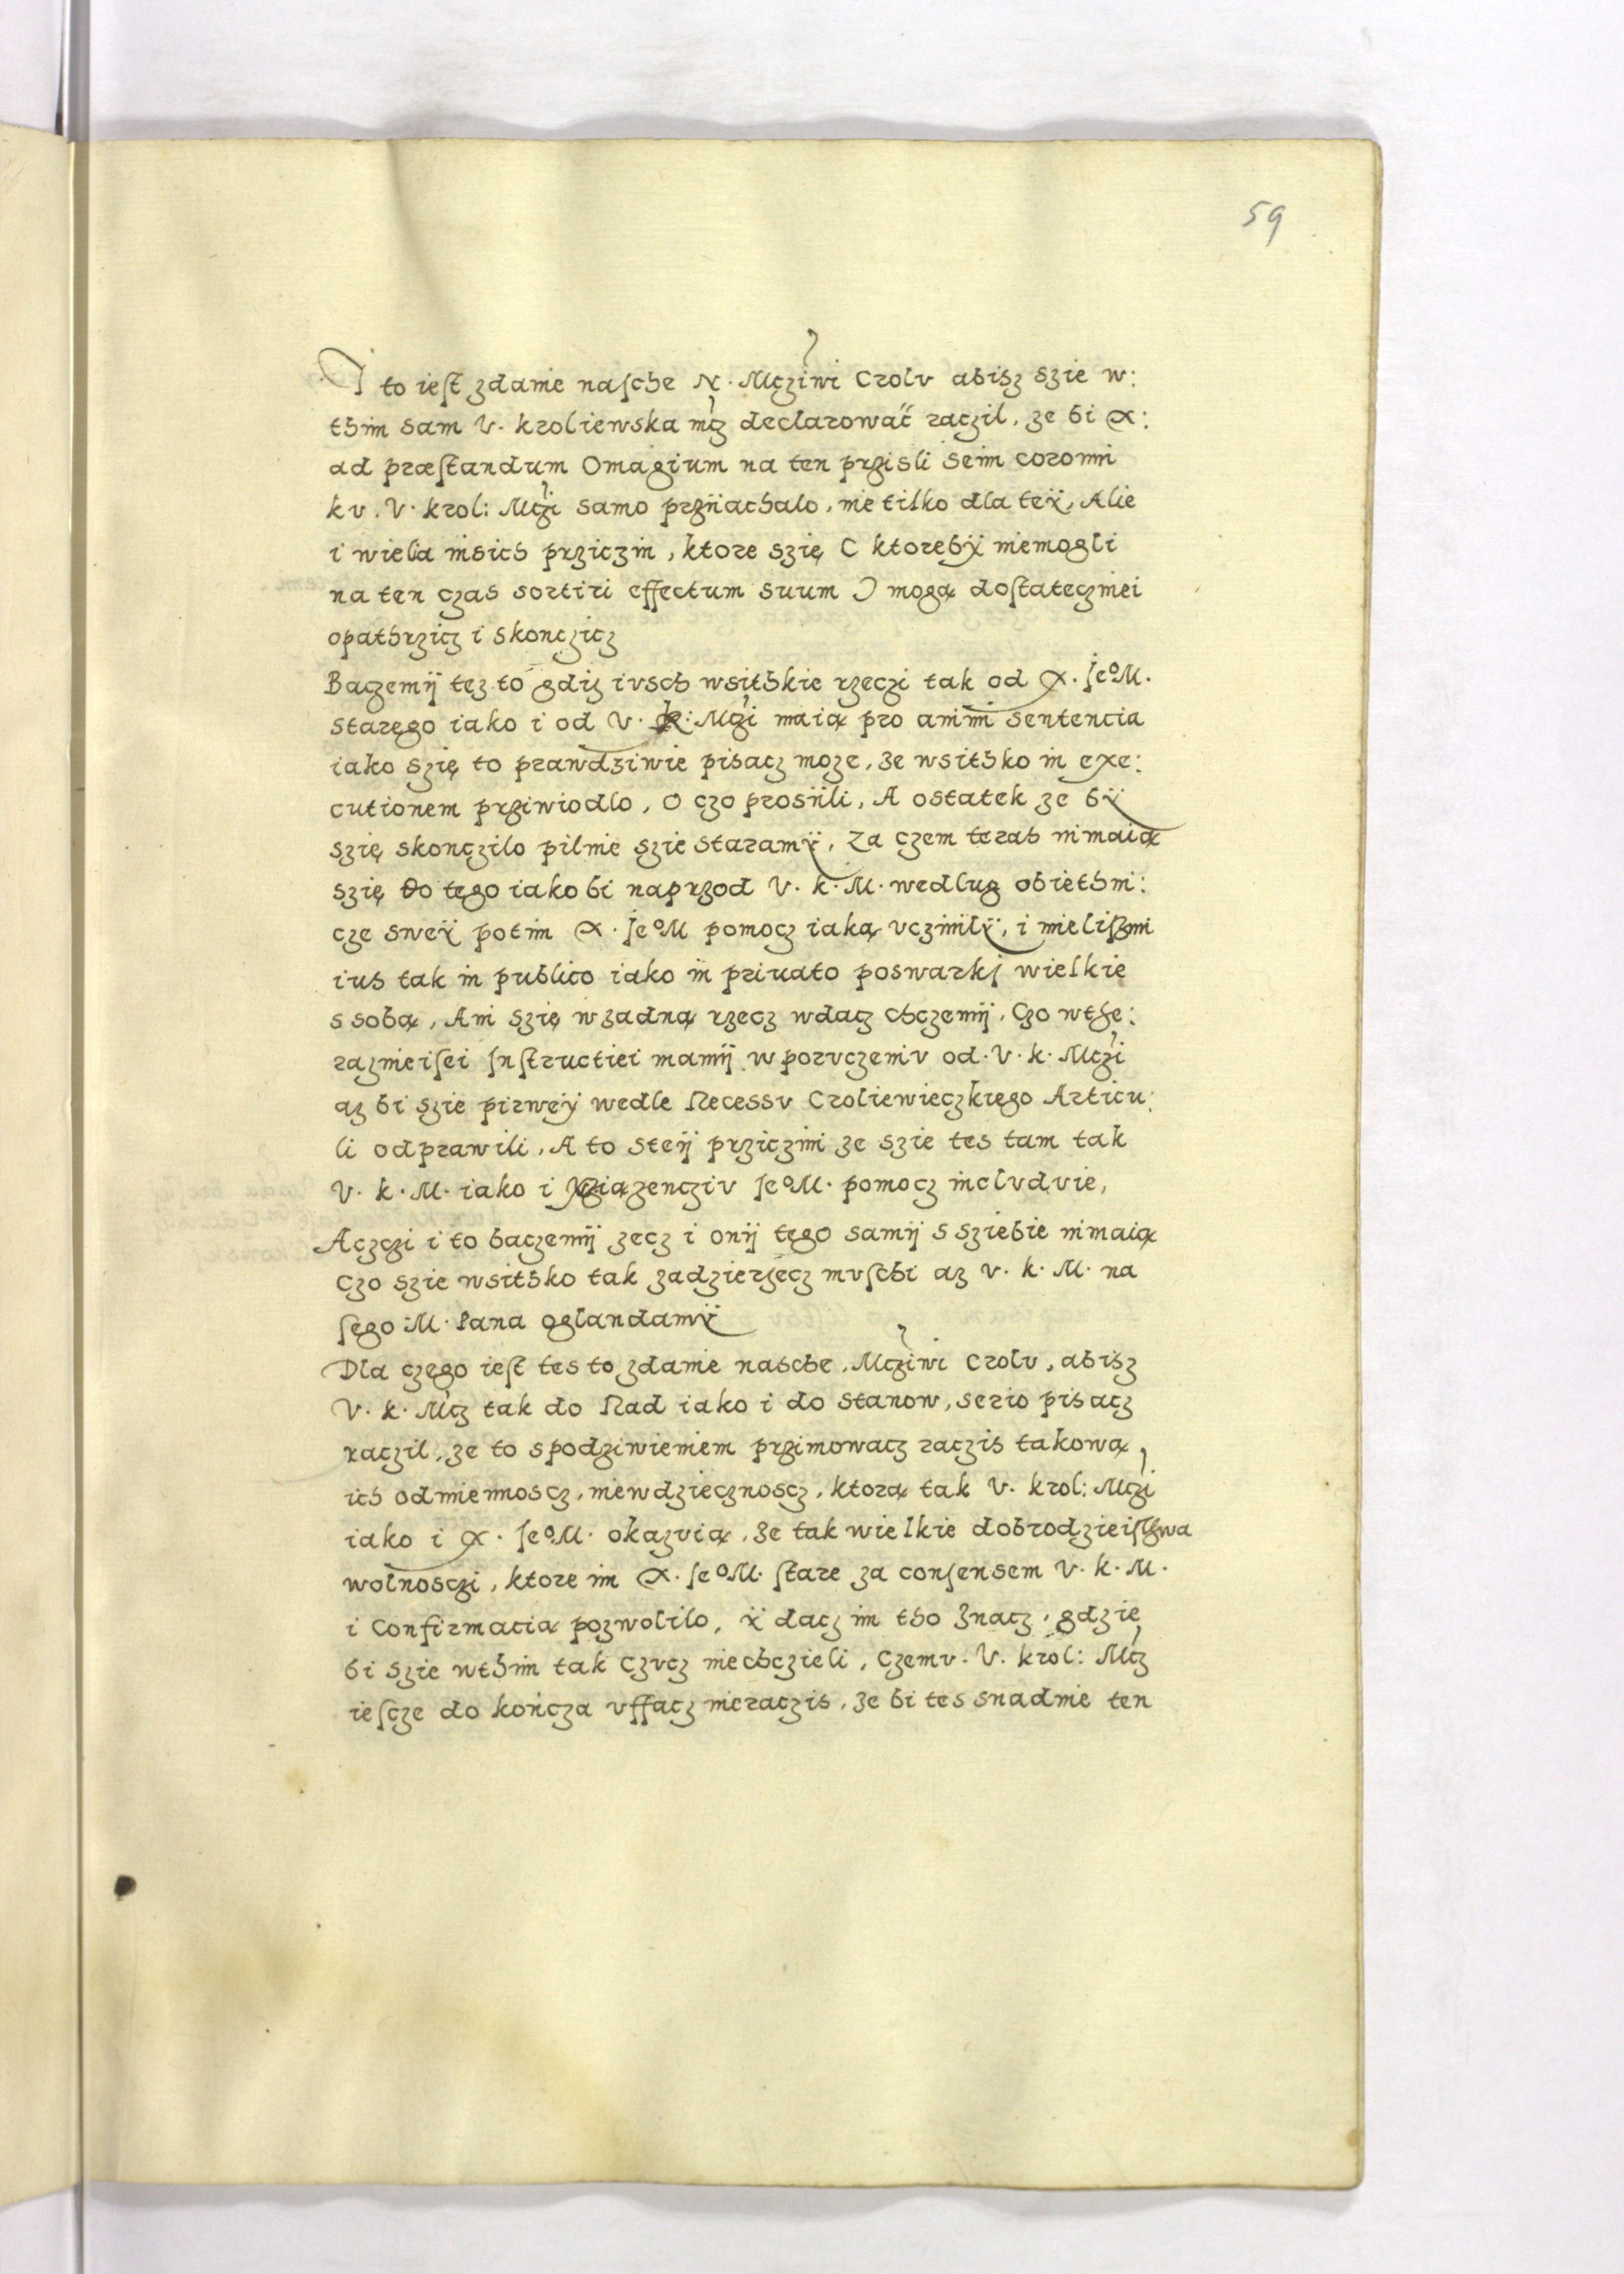 59
I to iest zdanie nasche N. Mcziwi Crolu abisz szie w:
thim sam V. kroliewska mcz declarować raczil, ze bi X:
ad præstandum Omagium na ten przisli seim coronni
ku. V. krol: Mczi samo prziiachalo, nie tilko dla teÿ, Alie
i wiela insich przicżin, ktore szię ( ktorebÿ niemogli
na ten czas sortiri effectum suum ) mogą dostatecżniei
opathrzicz i skonczicz
Baczemÿ tez to gdiz iusch wsithkie rzeczi tak od X. JeoM.
starego iako i od V. K: Mczi maią pro animi sententia
iako szię to prawdziwie pisacz moze, ze wsithko in exe:
cutionem prziwiodlo, o czo prosÿli, A ostatek ze bÿ
szię skonczilo pilnie szie staramÿ, Za czem terah nimaią
szię do tego iako bi naprzod V. k. M. wedlug obiethni:
cze sweÿ potim X. JeoM pomocz iaką vczinilÿ, i mielismi
ius tak in publico iako in priuato poswarkj wielkie
s sobą, Ani szię w zadną rzecz wdacz chczemÿ, Czo w the:
raznieisei Instructiei mamÿ w poruczeniu od. V. k. Mczi
az bi szie pirweÿ wedle Recessu Croliewieczkiego Articu:
li odprawili, A to s teÿ przicżini ze szie tes tam tak
V. k. M. iako i Xziązencziu JeoM. pomocz includuie,
Aczczi i to baczemÿ zecz i onÿ tego samÿ s sziebie nimaią
Czo szie wsithko tak zadzierzecz muschi az V. k. M. na
sego M. Pana oglandamÿ
Dla czego iest tes to zdanie nasche, Mcziwi Crolu, abisz
V. k. Mcz tak do Rad iako i do stanow, serio pisacz
raczil, ze to s podziwieniem przimowacz raczis takową
ich odmiennoscz, niewdziecznoscz, ktorą tak V. krol: Mczi
iako i X. JeoM. okazuią, ze tak wielkie dobrodzieistwa
wolnosczi, ktore im X. JeoM. stare za consensem V. k. M.
i Confirmacia pozwolilo, ÿ dacz im tho znacz, gdzie
bi szie w thim tak czucz niechczieli, Czemu. V. krol: Mcz
iescze do kończa vffacz nieraczis, ze bi tes snadnie ten